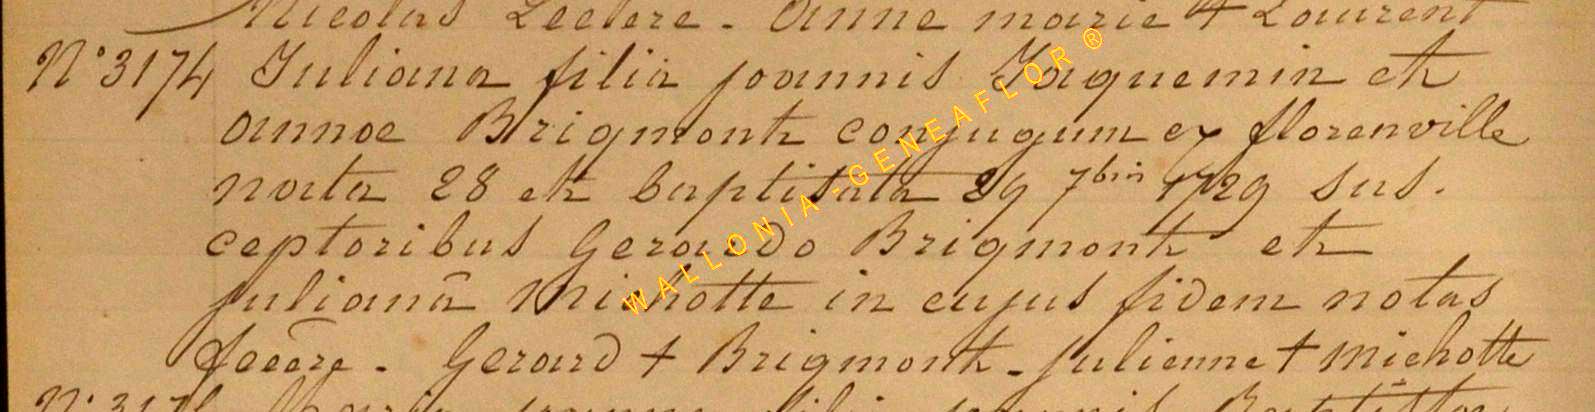 Nicolas Leclere - Anne marie + Laurent
N° 3174 Juliana filia joannis Jaquemin et
annae Brigmont conjugum ex florenville
nata 28 et baptisata 29 7bris 1729 sus-
ceptoribus Gerardo Brigmont et
julianâ Michotte in cujus fidem notas
fecêre - Gerard + Brigmont - julienne + Michotte
WALLONIA-GENEAFLOR®